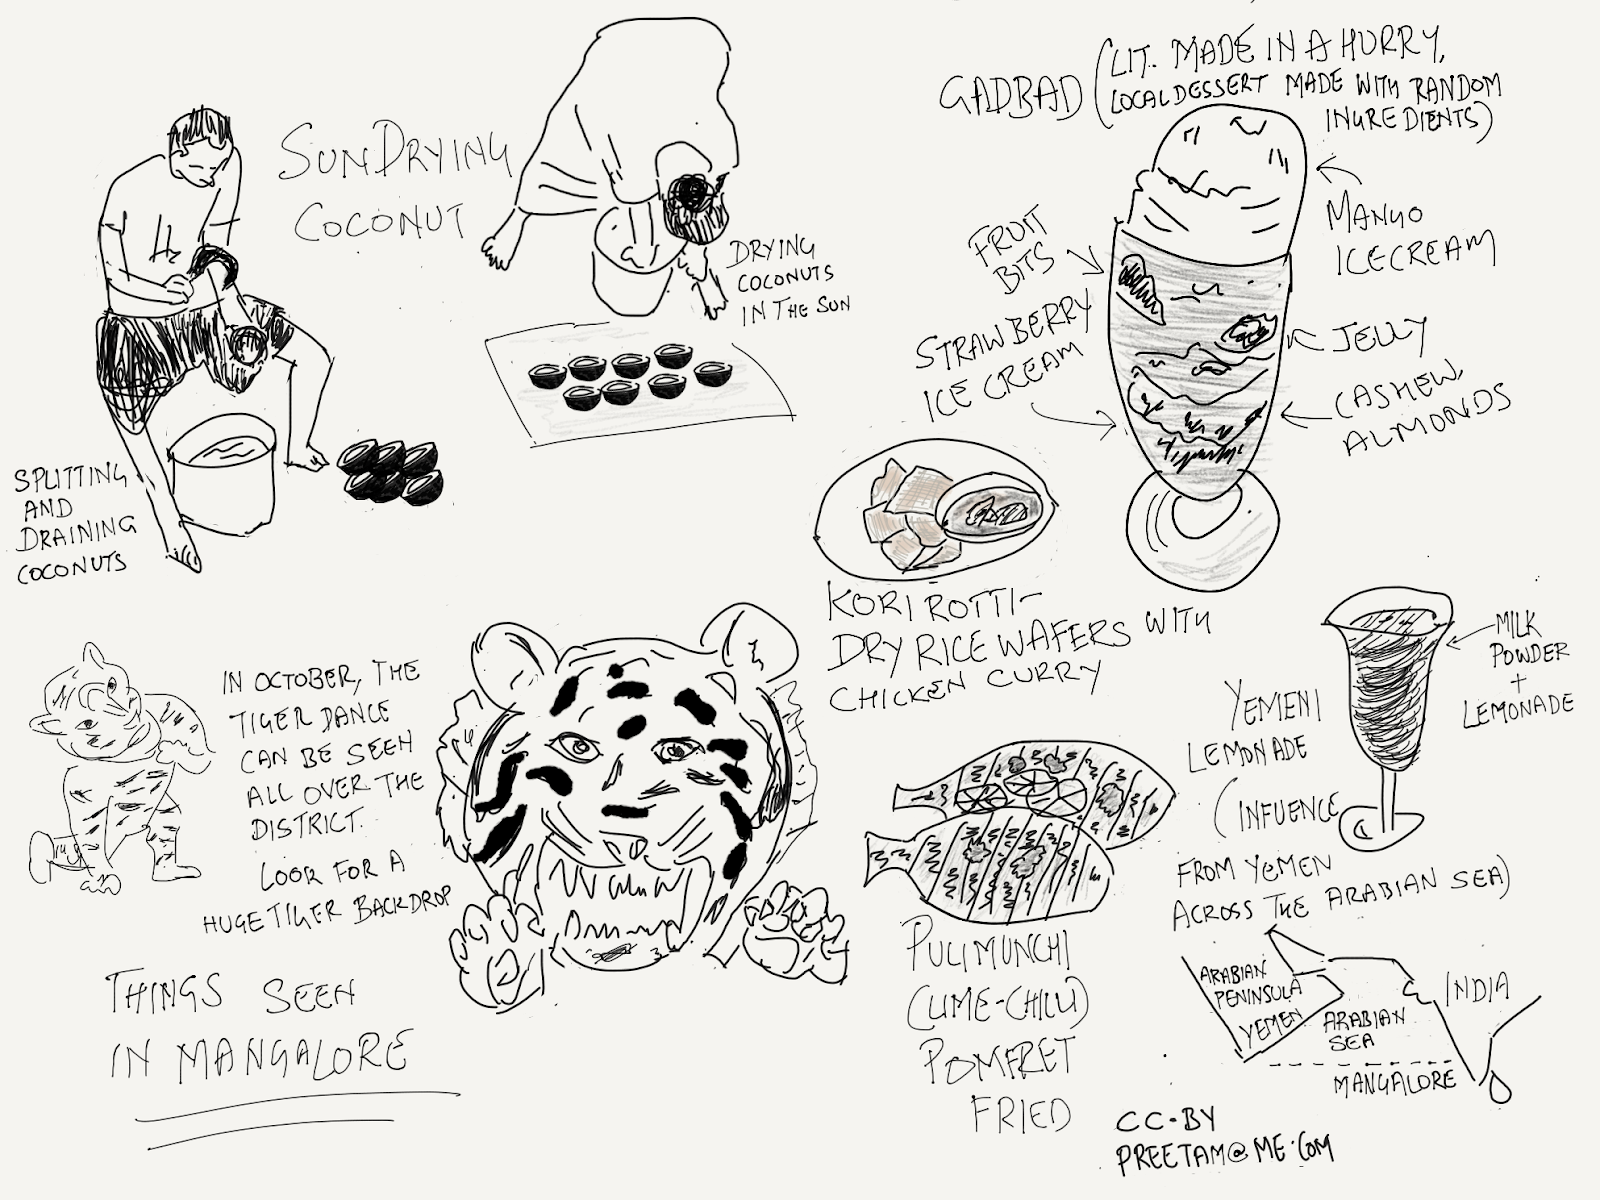 SUN DRYING
COCONUT
DRYING
COCONUTS
IN THE SUN
SPLITTING
AND
DRAINING
COCONUTS
GADBAD (LIT. MADE IN A HURRY,
LOCAL DESSERT MADE WITH RANDOM
INGREDIENTS)
MANGO
ICECREAM
FRUIT
BITS
STRAWBERRY
ICE CREAM
JELLY
CASHEW,
ALMONDS
KORI ROTTI-
DRY RICE WAFERS WITH
CHICKEN CURRY
IN OCTOBER, THE
TIGER DANCE
CAN BE SEEN
ALL OVER THE
DISTRICT.
LOOK FOR A
HUGE TIGER BACKDROP
THINGS SEEN
IN MANGALORE
PULIMUNCHI
(LIME-CHILI)
POMFRET
FRIED
MILK
POWDER
+
LEMONADE
YEMENI
LEMONADE
(INFUENCE
FROM YEMEN
ACROSS THE ARABIAN SEA)
ARABIAN
PENINSULA
YEMEN
ARABIAN
SEA
INDIA
MANGALORE
CC-BY
PREETAM@ME.COM